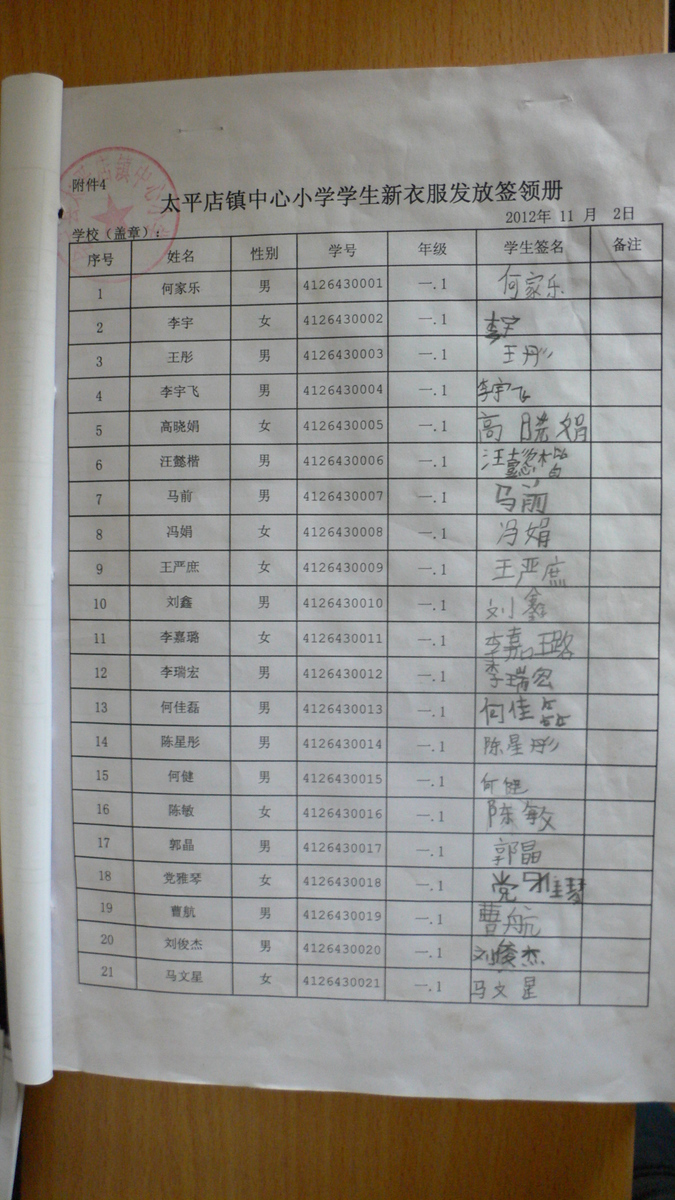 附件4
太平店镇中心小学学生新衣服发放签领册
2012年 11 月 2日
学校（盖章）：
序号 姓名 性别 学号 年级 学生签名 备注
1 何家乐 男 4126430001 一.1 何家乐
2 李宇 女 4126430002 一.1 李宇
3 王彤 男 4126430003 一.1 王彤
4 李宇飞 男 4126430004 一.1 李宇飞
5 高晓娟 女 4126430005 一.1 高晓娟
6 汪懿楷 男 4126430006 一.1 汪懿楷
7 马前 男 4126430007 一.1 马前
8 冯娟 女 4126430008 一.1 冯娟
9 王严庶 女 4126430009 一.1 王严庶
10 刘鑫 男 4126430010 一.1 刘鑫
11 李嘉璐 女 4126430011 一.1 李嘉璐
12 李瑞宏 男 4126430012 一.1 李瑞宏
13 何佳磊 男 4126430013 一.1 何佳磊
14 陈星彤 男 4126430014 一.1 陈星彤
15 何健 男 4126430015 一.1 何健
16 陈敏 女 4126430016 一.1 陈敏
17 郭晶 男 4126430017 一.1 郭晶
18 党雅琴 女 4126430018 一.1 党雅琴
19 曹航 男 4126430019 一.1 曹航
20 刘俊杰 男 4126430020 一.1 刘俊杰
21 马文星 女 4126430021 一.1 马文星